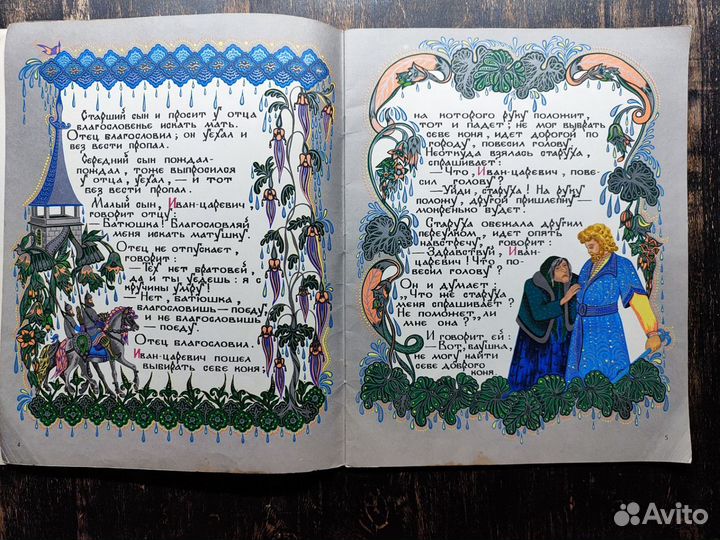 Старший сын и просит у отца
благословенье искать мать.
Отец благословил; он уехал и
без вести пропал.
Середний сын пождал-
пождал, тоже выпросился
у отца, уехал, — и тот
без вести пропал.
Малый сын, Иван-царевич,
говорит отцу:
— Батюшка! Благословляй
меня искать матушку.
Отец не отпускает,
говорит:
— Тех нет братовей,
да и ты уедешь: я с
кручины умру!
— Нет, батюшка,
благословишь — поеду,
и не благословишь —
поеду.
Отец благословил.
Иван-царевич пошел
выбирать себе коня;
4
на которого руку положит,
тот и падет; не мог выбрать
себе коня, идет дорогой по
городу, повесил голову.
Неоткуда взялась старуха,
спрашивает:
— Что, Иван-царевич, пове-
сил голову?
— Уйди, старуха! На руку
положу, другой пришлепну —
мокренько будет.
Старуха обежала другим
переулком, идет опять
навстречу, говорит:
— Здравствуй, Иван-
царевич! Что по-
весил голову?
Он и думает:
„Что же старуха
меня спрашивает?
Не поможет ли
мне она?"
И говорит ей:
— Вот, баушка,
не могу найти
себе доброго
коня.
5
Avito